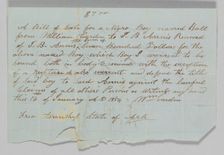 $700
A Bill of Sale for a Negro Boy named Ball
from William Jordin to J. B. Annis Received
of J. B. Annis Seven Hundred Dollars for the
above named Boy which Boy I warrant to be
sound both in body & mind with the exception
of a and defend the title
of said boy to said Annis against the lawful
Claims of all other Persons
this 16 of January AD 1859 Wm Jordin
State of Ark